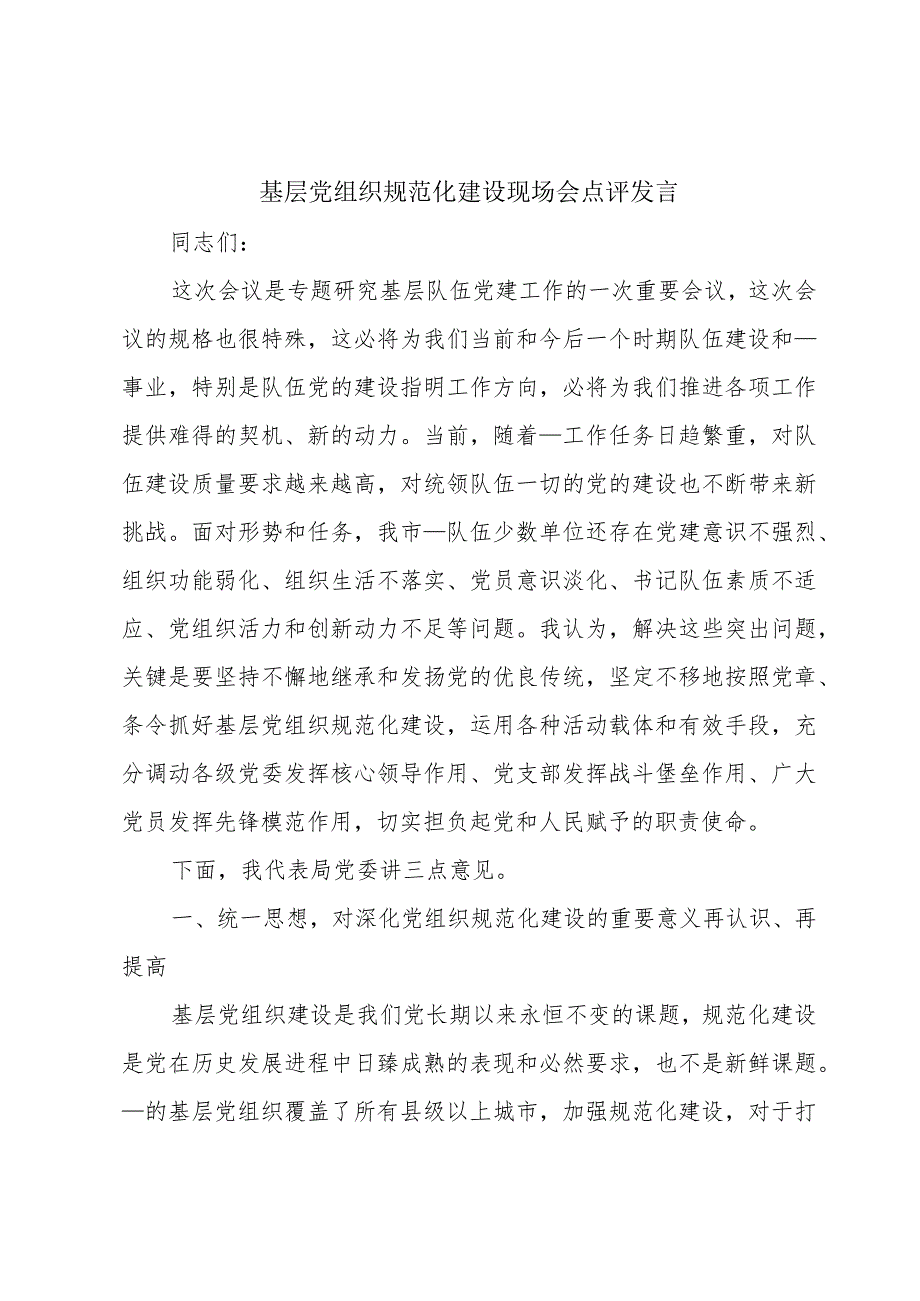 基层党组织规范化建设现场会点评发言
同志们：
这次会议是专题研究基层队伍党建工作的一次重要会议，这次会
议的规格也很特殊，这必将为我们当前和今后一个时期队伍建设和—
事业，特别是队伍党的建设指明工作方向，必将为我们推进各项工作
提供难得的契机、新的动力。当前，随着—工作任务日趋繁重，对队
伍建设质量要求越来越高，对统领队伍一切的党的建设也不断带来新
挑战。面对形势和任务，我市—队伍少数单位还存在党建意识不强烈、
组织功能弱化、组织生活不落实、党员意识淡化、书记队伍素质不适
应、党组织活力和创新动力不足等问题。我认为，解决这些突出问题，
关键是要坚持不懈地继承和发扬党的优良传统，坚定不移地按照党章、
条令抓好基层党组织规范化建设，运用各种活动载体和有效手段，充
分调动各级党委发挥核心领导作用、党支部发挥战斗堡垒作用、广大
党员发挥先锋模范作用，切实担负起党和人民赋予的职责使命。
下面，我代表局党委讲三点意见。
一、统一思想，对深化党组织规范化建设的重要意义再认识、再
提高
基层党组织建设是我们党长期以来永恒不变的课题，规范化建设
是党在历史发展进程中日臻成熟的表现和必然要求，也不是新鲜课题。
—的基层党组织覆盖了所有县级以上城市，加强规范化建设，对于打